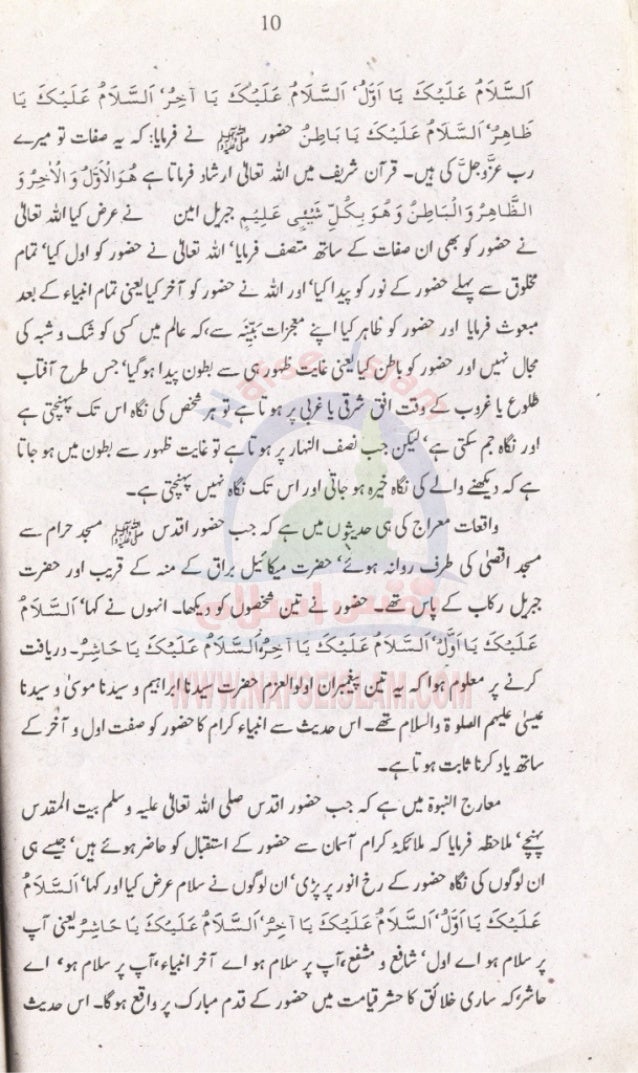 10
اَلسَّلَامُ عَلَیْکَ یَا اَوَّلُ‘ اَلسَّلَامُ عَلَیْکَ یَا آخِرُ‘ اَلسَّلَامُ عَلَیْکَ یَا
ظَاہِرُ‘ اَلسَّلَامُ عَلَیْکَ یَا بَاطِنُ حضور ﷺ نے فرمایا: کہ یہ صفات تو میرے
رب عزّوجلّ کی ہیں۔ قرآن شریف میں اللہ تعالیٰ ارشاد فرماتا ہے ھُوَالْاَوَّلُ وَالْاٰخِرُ وَ
الظَّاھِرُ وَالْبَاطِنُ وَھُوَبِکُلِّ شَیْئٍی عَلِیْمٍ جبریل امین نے عرض کیا اللہ تعالیٰ
نے حضور کو بھی ان صفات کے ساتھ متصف فرمایا‘ اللہ تعالیٰ نے حضور کو اول کیا‘ تمام
مخلوق سے پہلے حضور کے نور کو پیدا کیا‘ اور اللہ نے حضور کو آخر کیا یعنی تمام انبیاء کے بعد
مبعوث فرمایا اور حضور کو ظاہر کیا اپنے معجزات بیّنہ سے،کہ عالم میں کسی کو شک و شبہ کی
مجال نہیں اور حضور کو باطن کیا یعنی غایت ظہور ہی سے بطون پیدا ہوگیا‘ جس طرح آفتاب
طلوع یا غروب کے وقت افق شرقی یا غربی پر ہوتا ہے تو ہر شخص کی نگاہ اس تک پہنچتی ہے
اور نگاہ جم سکتی ہے‘ لیکن جب نصف النہار پر ہوتا ہے تو غایت ظہور سے بطون میں ہو جاتا
ہے کہ دیکھنے والے کی نگاہ خیرہ ہو جاتی اور اس تک نگاہ نہیں پہنچتی ہے۔
واقعات معراج کی ہی حدیثوں میں ہے کہ جب حضور اقدس ﷺ مسجد حرام سے
مسجد اقصیٰ کی طرف روانہ ہوئے‘ حضرت میکائیل براق کے منہ کے قریب اور حضرت
جبریل رکاب کے پاس تھے۔ حضور نے تین شخصوں کو دیکھا۔ انہوں نے کہا‘ اَلسَّلَامُ
عَلَیْکَ یَا اَوَّلُ‘ اَلسَّلَامُ عَلَیْکَ یَا آخِرُ‘اَلسَّلَامُ عَلَیْکَ یَا حَاشِرُ۔ دریافت
کرنے پر معلوم ہوا کہ یہ تین پیغمبران اولوالعزم حضرت سیدنا ابراہیم و سیدنا موسیٰ و سیدنا
عیسیٰ علیہم الصلوۃ والسلام تھے۔ اس حدیث سے انبیاء کرام کا حضور کو صفت اول و آخر کے
ساتھ یاد کرنا ثابت ہوتا ہے۔
معارج النبوۃ میں ہے کہ جب حضور اقدس صلی اللہ تعالیٰ علیہ وسلم بیت المقدس
پہنچے‘ ملاحظہ فرمایا کہ ملائکہ کرام آسمان سے حضور کے استقبال کو حاضر ہوئے ہیں‘ جیسے ہی
ان لوگوں کی نگاہ حضور کے رخ انور پر پڑی‘ ان لوگوں نے سلام عرض کیا اور کہا‘ اَلسَّلَامُ
عَلَیْکَ یَا اَوَّلُ‘ اَلسَّلَامُ عَلَیْکَ یَا آخِرُ‘ اَلسَّلَامُ عَلَیْکَ یَا حَاشِرُ یعنی آپ
پر سلام ہو اے اول‘ شافع و مشفع،آپ پر سلام ہو اے آخر انبیاء،آپ پر سلام ہو‘ اے
حاشر،کہ ساری خلائق کا حشر قیامت میں حضور کے قدم مبارک پر واقع ہوگا۔ اس حدیث
Nafse Islam
نفس اسلام
WWW.NAFSEISLAM.COM